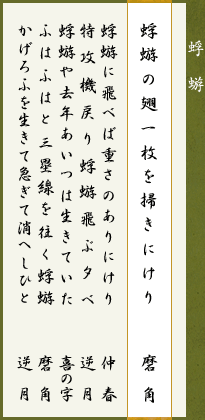 蜉蝣
蜉蝣の翅一枚を掃きにけり 磨角
蜉蝣に飛べば重さのありにけり 仲春
特攻機戻り蜉蝣飛ぶ夕べ 逆月
蜉蝣や去年あいつは生きていた 喜の字
ふはふはと三塁線を往く蜉蝣 磨角
かげろふを生きて急ぎて消へしひと 逆月